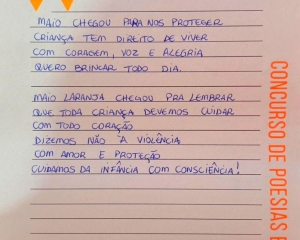 MAIO CHEGOU PARA NOS PROTEGER
CRIANÇA TEM DIREITO DE VIVER
COM CORAGEM, VOZ E ALEGRIA
QUERO BRINCAR TODO DIA.
MAIO LARANJA CHEGOU PRA LEMBRAR
QUE TODA CRIANÇA DEVEMOS CUIDAR
COM TODO CORAÇÃO
DIZEMOS NÃO À VIOLÊNCIA
COM AMOR E PROTEÇÃO
CUIDAMOS DA INFÂNCIA COM CONSCIÊNCIA!
CONCURSO DE POESIAS E